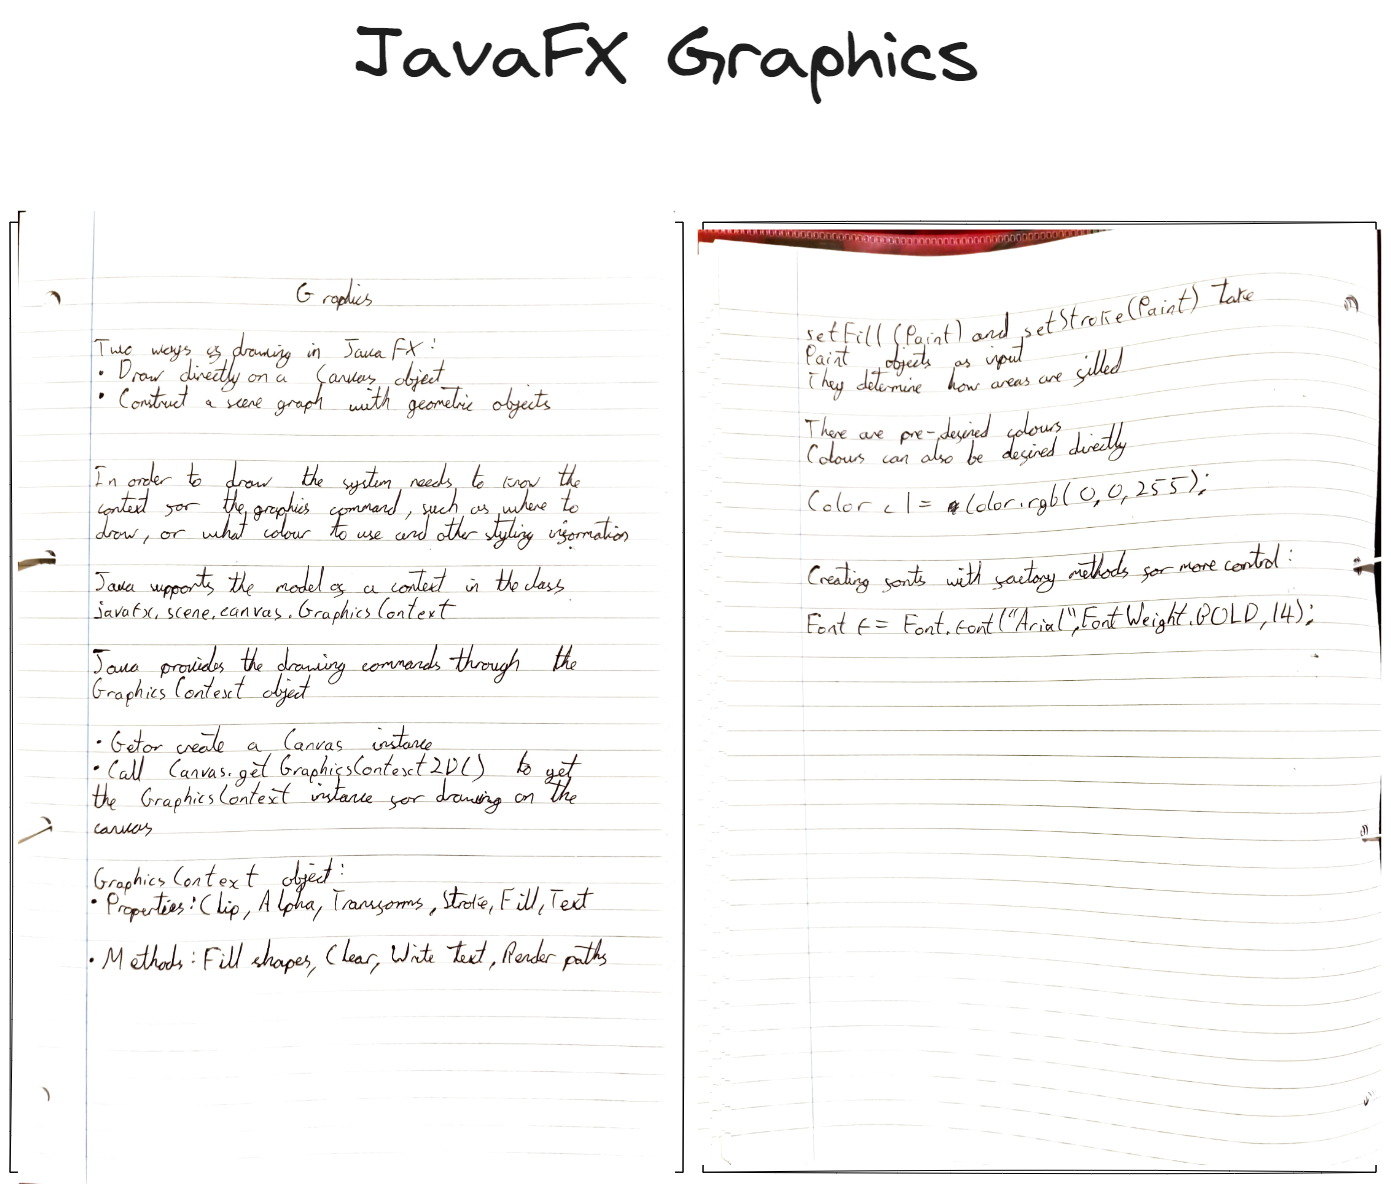 JavaFX Graphics
Graphics
Two ways of drawing in JavaFX:
• Draw directly on a Canvas object
• Construct a scene graph with geometric objects
In order to draw the system needs to know the
context for the graphics command, such as where to
draw, or what colour to use and other styling information
Java supports the model of a context in the class
javafx.scene.canvas.GraphicsContext
Java provides the drawing commands through the
GraphicsContext object
• Get or create a Canvas instance
• Call Canvas.getGraphicsContext2D() to get
the GraphicsContext instance for drawing on the
canvas
GraphicsContext object:
• Properties: Clip, Alpha, Transforms, Stroke, Fill, Text
• Methods: Fill shapes, Clear, Write text, Render paths
setFill(Paint) and setStroke(Paint) take
Paint objects as input
They determine how areas are filled
There are pre-defined colours
Colours can also be defined directly
Color c1 = Color.rgb(0,0,255);
Creating fonts with factory methods for more control:
Font f = Font.font("Arial", FontWeight.BOLD, 14);